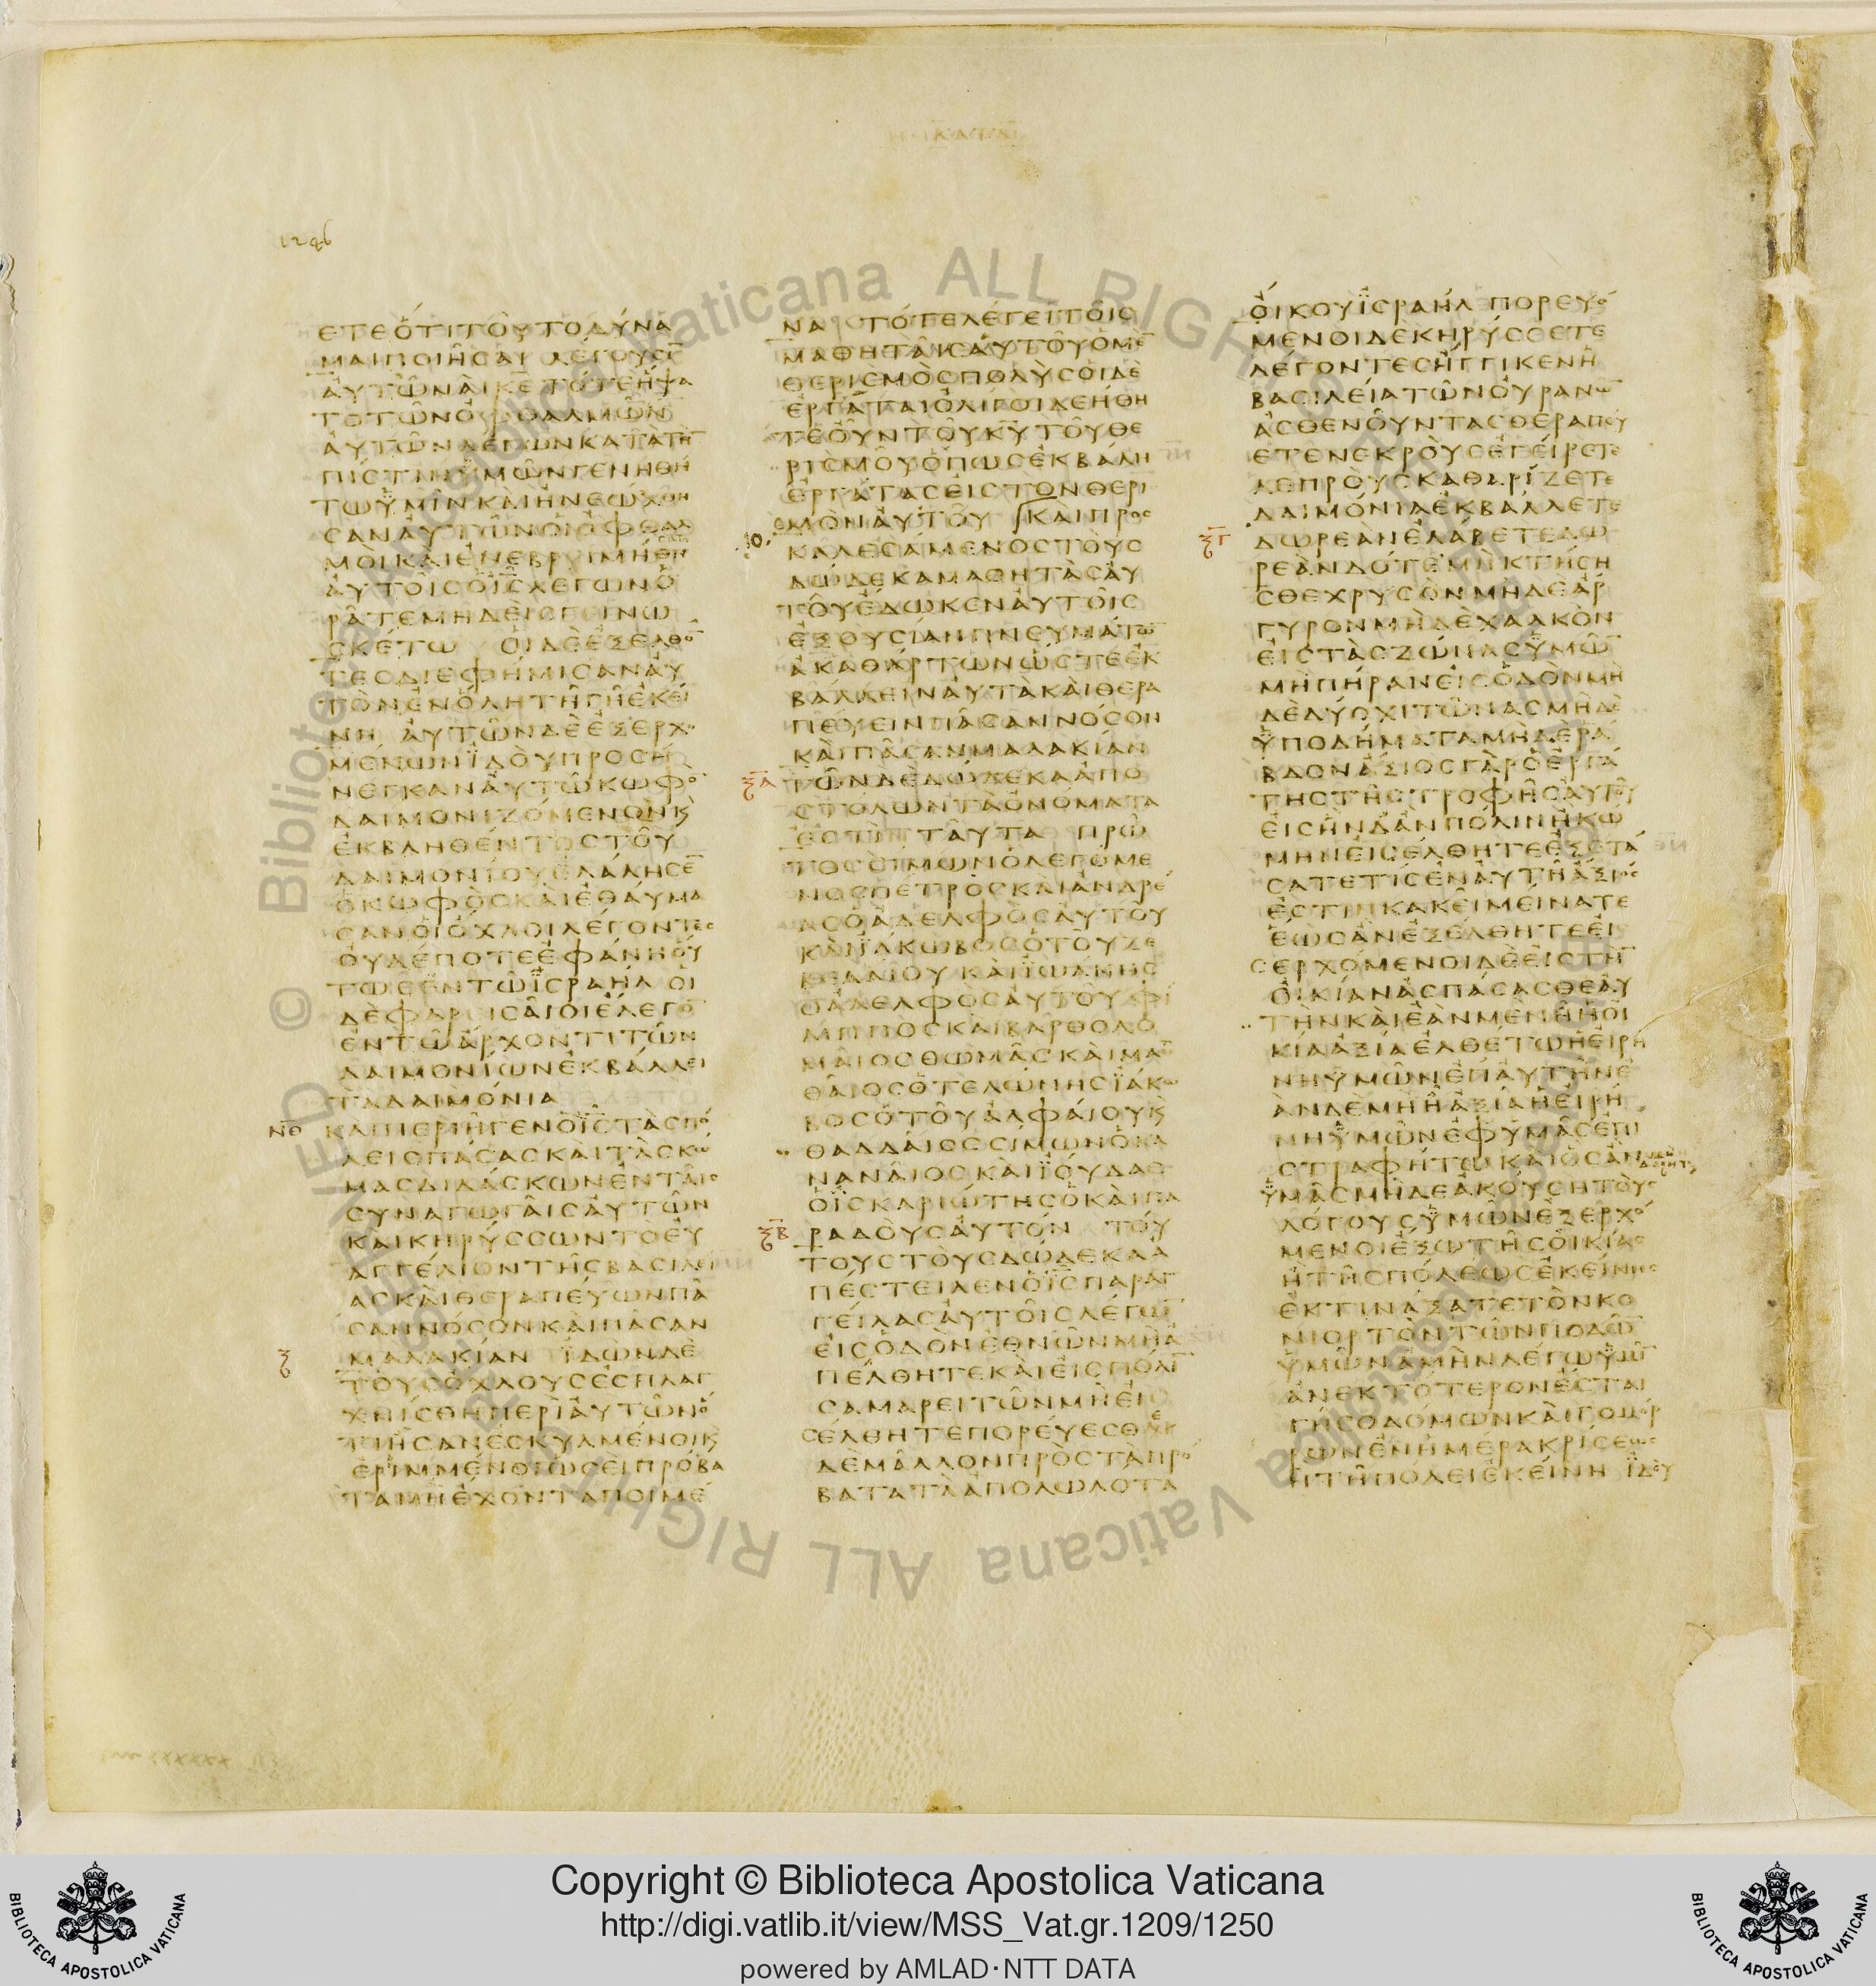 1246
ΕΤΕΟΤΙΤΟΥΤΟΔΥΝΑ
ΜΑΙΠΟΙΗΣΑΙ ΛΕΓΟΥΣΙ̅
ΑΥΤΩΝΑΙΚΕ̅ ΤΟΤΕΗΨΑ
ΤΟΤΩΝΟΦΘΑΛΜΩΝ
ΑΥΤΩΝΛΕΓΩΝΚΑΤΑΤΗ̅
ΠΙΣΤΙΝΥΜΩΝΓΕΝΗΘΗ
ΤΩΥΜΙΝΚΑΙΗΝΕΩΧΘΗ
ΣΑΝΑΥΤΩΝΟΙΟΦΘΑΛ
ΜΟΙΚΑΙΕΝΕΒΡΙΜΗΘΗ
ΑΥΤΟΙΣΟΙ̅Σ̅ΛΕΓΩΝΟ
ΡΑΤΕΜΗΔΕΙΣΓΕΙΝΩ
ΣΚΕΤΩ ΟΙΔΕΕΞΕΛΘΟ̅
ΤΕΣΔΙΕΦΗΜΙΣΑΝΑΥ
ΤΟΝΕΝΟΛΗΤΗΓΗΕΚΕΙ
ΝΗ ΑΥΤΩΝΔΕΕΞΕΡΧΟ
ΜΕΝΩΝΪΔΟΥΠΡΟΣΗ
ΝΕΓΚΑΝΑΥΤΩΚΩΦΟ̅
ΔΑΙΜΟΝΙΖΟΜΕΝΟΝϏ
ΕΚΒΛΗΘΕΝΤΟΣΤΟΥ
ΔΑΙΜΟΝΙΟΥΕΛΑΛΗΣΕ̅
ΟΚΩΦΟΣΚΑΙΕΘΑΥΜΑ
ΣΑΝΟΙΟΧΛΟΙΛΕΓΟΝΤΕΣ
ΟΥΔΕΠΟΤΕΕΦΑΝΗΟΥ
ΤΩΣΕΝΤΩΪΣΡΑΗΛ ΟΙ
ΔΕΦΑΡΕΙΣΑΙΟΙΕΛΕΓΟ̅
ΕΝΤΩΑΡΧΟΝΤΙΤΩΝ
ΔΑΙΜΟΝΙΩΝΕΚΒΑΛΛΕΙ
ΤΑΔΑΙΜΟΝΙΑ
ΝΘ ΚΑΙΠΕΡΙΗΓΕΝΟΙ̅Σ̅ΤΑΣΠΟ
ΛΕΙΣΠΑΣΑΣΚΑΙΤΑΣΚΩ
ΜΑΣΔΙΔΑΣΚΩΝΕΝΤΑΙΣ
ΣΥΝΑΓΩΓΑΙΣΑΥΤΩΝ
ΚΑΙΚΗΡΥΣΣΩΝΤΟΕΥ
ΑΓΓΕΛΙΟΝΤΗΣΒΑΣΙΛΕΙ
ΑΣΚΑΙΘΕΡΑΠΕΥΩΝΠΑ
ΣΑΝΝΟΣΟΝΚΑΙΠΑΣΑΝ
Ξ ΜΑΛΑΚΙΑΝ ΪΔΩΝΔΕ
ΤΟΥΣΟΧΛΟΥΣΕΣΠΛΑΓ
ΧΝΙΣΘΗΠΕΡΙΑΥΤΩΝΟ̅
ΤΙΗΣΑΝΕΣΚΥΛΜΕΝΟΙϏ
ΕΡΙΜΜΕΝΟΙΩΣΕΙΠΡΟΒΑ
ΤΑΜΗΕΧΟΝΤΑΠΟΙΜΕ
ΝΑ ΤΟΤΕΛΕΓΕΙΤΟΙΣ
ΜΑΘΗΤΑΙΣΑΥΤΟΥΟΜΕ̅
ΘΕΡΙΣΜΟΣΠΟΛΥΣΟΙΔΕ
ΕΡΓΑΤΑΙΟΛΙΓΟΙΔΕΗΘΗ
ΤΕΟΥΝΤΟΥΚ̅Υ̅ΤΟΥΘΕ
ΡΙΣΜΟΥΟΠΩΣΕΚΒΑΛΗ
ΕΡΓΑΤΑΣΕΙΣΤΟΝΘΕΡΙ
ΣΜΟΝΑΥΤΟΥ ΚΑΙΠΡΟΣ
Ι ΚΑΛΕΣΑΜΕΝΟΣΤΟΥΣ
ΔΩΔΕΚΑΜΑΘΗΤΑΣΑΥ
ΤΟΥΕΔΩΚΕΝΑΥΤΟΙΣ
ΕΞΟΥΣΙΑΝΠΝΕΥΜΑΤΩ̅
ΑΚΑΘΑΡΤΩΝΩΣΤΕΕΚ
ΒΑΛΛΕΙΝΑΥΤΑΚΑΙΘΕΡΑ
ΠΕΥΕΙΝΠΑΣΑΝΝΟΣΟΝ
ΚΑΙΠΑΣΑΝΜΑΛΑΚΙΑΝ
ΞΑ ΤΩΝΔΕΔΩΔΕΚΑΑΠΟ
ΣΤΟΛΩΝΤΑΟΝΟΜΑΤΑ
ΕΣΤΙΝ ΤΑΥΤΑ ΠΡΩ
ΤΟΣΣΙΜΩΝΟΛΕΓΟΜΕ
ΝΟΣΠΕΤΡΟΣΚΑΙΑΝΔΡΕ
ΑΣΟΑΔΕΛΦΟΣΑΥΤΟΥ
ΚΑΙΪΑΚΩΒΟΣΟΤΟΥΖΕ
ΒΕΔΑΙΟΥΚΑΙΪΩΑΝΗΣ
ΟΑΔΕΛΦΟΣΑΥΤΟΥΦΙ
ΛΙΠΠΟΣΚΑΙΒΑΡΘΟΛΟ
ΜΑΙΟΣΘΩΜΑΣΚΑΙΜΑΘ
ΘΑΙΟΣΟΤΕΛΩΝΗΣΪΑΚΩ
ΒΟΣΟΤΟΥΑΛΦΑΙΟΥϏ
ΘΑΔΔΑΙΟΣΣΙΜΩΝΟΚΑ
ΝΑΝΑΙΟΣΚΑΙΪΟΥΔΑΣ
ΟΪΣΚΑΡΙΩΤΗΣΟΚΑΙΠΑ
ΞΒ ΡΑΔΟΥΣΑΥΤΟΝ ΤΟΥ
ΤΟΥΣΤΟΥΣΔΩΔΕΚΑΑ
ΠΕΣΤΕΙΛΕΝΟΙ̅Σ̅ΠΑΡΑΓ
ΓΕΙΛΑΣΑΥΤΟΙΣΛΕΓΩ̅
ΕΙΣΟΔΟΝΕΘΝΩΝΜΗΑ
ΠΕΛΘΗΤΕΚΑΙΕΙΣΠΟΛΙ̅
ΣΑΜΑΡΕΙΤΩΝΜΗΕΙ
ΣΕΛΘΗΤΕΠΟΡΕΥΕΣΘΕ
ΔΕΜΑΛΛΟΝΠΡΟΣΤΑΠΡΟ
ΒΑΤΑΤΑΑΠΟΛΩΛΟΤΑ
ΟΙΚΟΥΪΣΡΑΗΛ ΠΟΡΕΥΟ
ΜΕΝΟΙΔΕΚΗΡΥΣΣΕΤΕ
ΛΕΓΟΝΤΕΣΗΓΓΙΚΕΝΗ
ΒΑΣΙΛΕΙΑΤΩΝΟΥΡΑΝΩ̅
ΑΣΘΕΝΟΥΝΤΑΣΘΕΡΑΠΕΥ
ΕΤΕΝΕΚΡΟΥΣΕΓΕΙΡΕΤΕ
ΛΕΠΡΟΥΣΚΑΘΑΡΙΖΕΤΕ
ΔΑΙΜΟΝΙΑΕΚΒΑΛΛΕΤΕ
ΞΓ ΔΩΡΕΑΝΕΛΑΒΕΤΕΔΩ
ΡΕΑΝΔΟΤΕΜΗΚΤΗΣΗ
ΣΘΕΧΡΥΣΟΝΜΗΔΕΑΡ
ΓΥΡΟΝΜΗΔΕΧΑΛΚΟΝ
ΕΙΣΤΑΣΖΩΝΑΣΥΜΩ̅
ΜΗΠΗΡΑΝΕΙΣΟΔΟΝΜΗ
ΔΕΔΥΟΧΙΤΩΝΑΣΜΗΔΕ
ΫΠΟΔΗΜΑΤΑΜΗΔΕΡΑ
ΒΔΟΝΑΞΙΟΣΓΑΡΟΕΡΓΑ
ΤΗΣΤΗΣΤΡΟΦΗΣΑΥΤΟΥ
ΕΙΣΗΝΔΑΝΠΟΛΙΝΗΚΩ
ΜΗΝΕΙΣΕΛΘΗΤΕΕΞΕΤΑ
ΣΑΤΕΤΙΣΕΝΑΥΤΗΑΞΙΟΣ
ΕΣΤΙΝΚΑΚΕΙΜΕΙΝΑΤΕ
ΕΩΣΑΝΕΞΕΛΘΗΤΕΕΙ
ΣΕΡΧΟΜΕΝΟΙΔΕΕΙΣΤΗ̅
ΟΙΚΙΑΝΑΣΠΑΣΑΣΘΕΑΥ
ΤΗΝΚΑΙΕΑΝΜΕΝΗΗΟΙ
ΚΙΑΑΞΙΑΕΛΘΕΤΩΗΕΙΡΗ
ΝΗΥΜΩΝΕΠΑΥΤΗΝΕ
ΑΝΔΕΜΗΗΑΞΙΑΗΕΙΡΗ
ΝΗΥΜΩΝΕΦΥΜΑΣΕΠΙ
ΣΤΡΑΦΗΤΩΚΑΙΟΣΑΝ
ΫΜΑΣΜΗΔΕΑΚΟΥΣΗΤΟΥΣ
ΛΟΓΟΥΣΥΜΩΝΕΞΕΡΧΟ
ΜΕΝΟΙΕΞΩΤΗΣΟΙΚΙΑΣ
ΗΤΗΣΠΟΛΕΩΣΕΚΕΙΝΗΣ
ΕΚΤΙΝΑΞΑΤΕΤΟΝΚΟ
ΝΙΟΡΤΟΝΤΩΝΠΟΔΩ̅
ΫΜΩΝΑΜΗΝΛΕΓΩΫΜΙ̅
ΑΝΕΚΤΟΤΕΡΟΝΕΣΤΑΙ
ΓΗΣΟΔΟΜΩΝΚΑΙΓΟΜΟΡ
ΡΩΝΕΝΗΜΕΡΑΚΡΙΣΕΩΣ
ΗΤΗΠΟΛΕΙΕΚΕΙΝΗ ΪΔΟΥ
Copyright © Biblioteca Apostolica Vaticana
http://digi.vatlib.it/view/MSS_Vat.gr.1209/1250
powered by AMLAD·NTT DATA
BIBLIOTECA APOSTOLICA VATICANA
BIBLIOTECA APOSTOLICA VATICANA